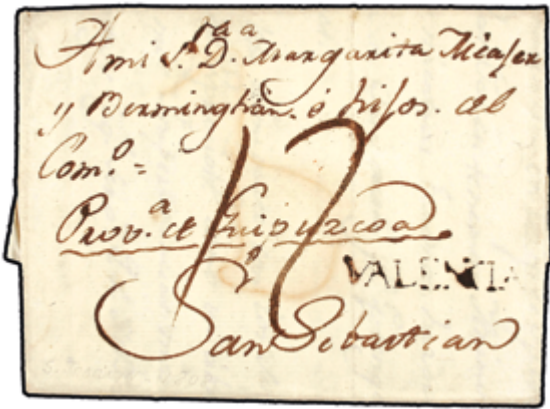 A mi S.ra D.a Margarita
y Bermingham é hijos. del
Com.o =
Prov.a de Guipuzcoa
12
VALENCIA
San Sebastian